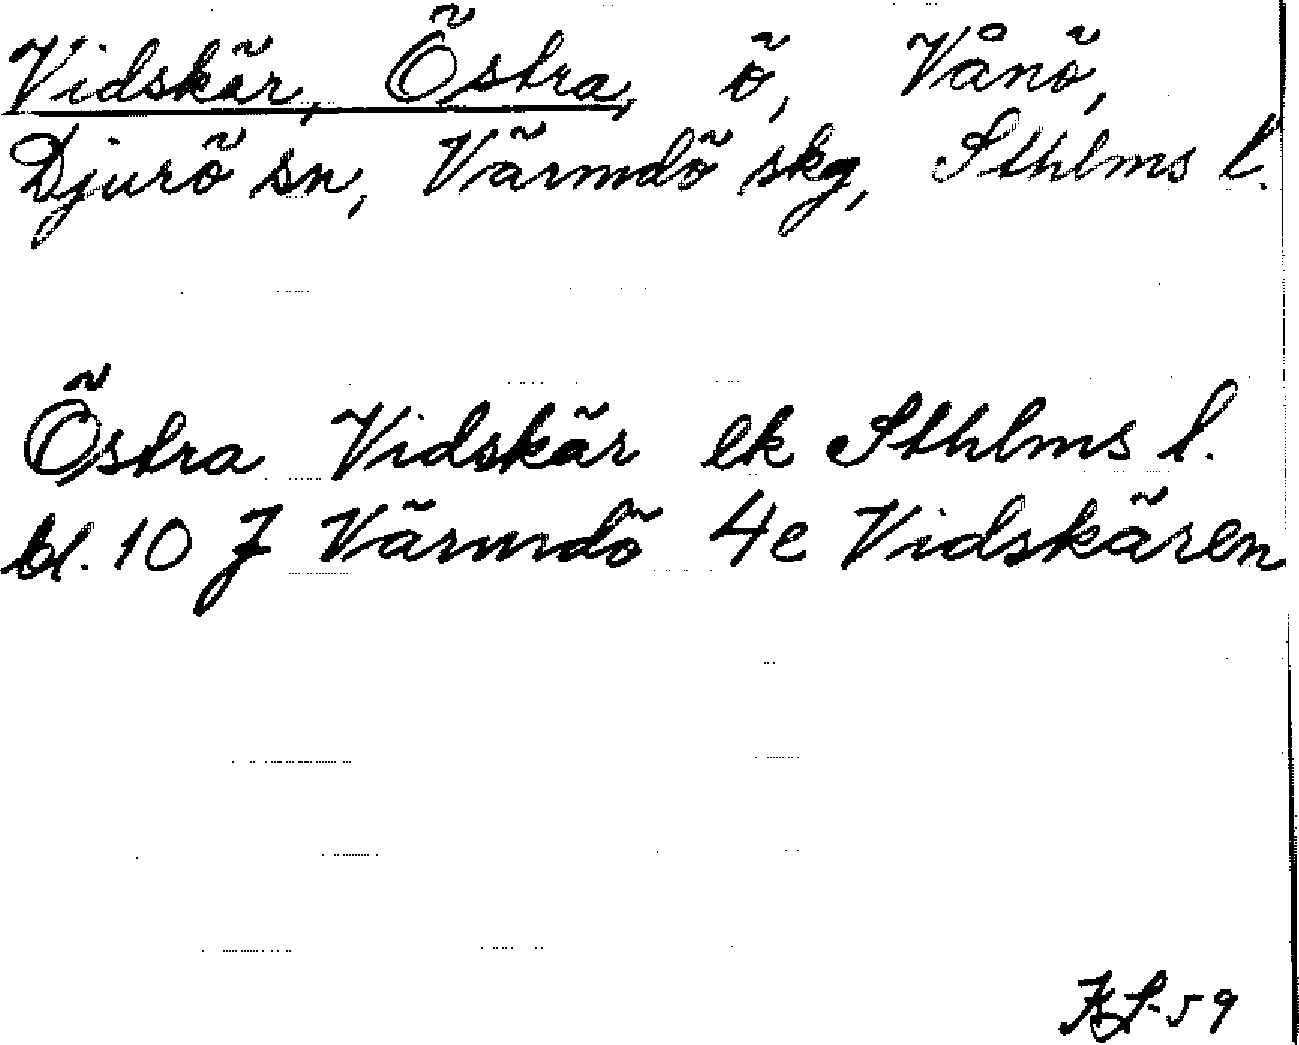 Vidskär, Östra, ö, Vånö,
Djurö sn, Värmdö skg, Sthlms l.
Östra Vidskär ek Sthlms l.
bl. 10 J Värmdö 4e Vidskären
-59